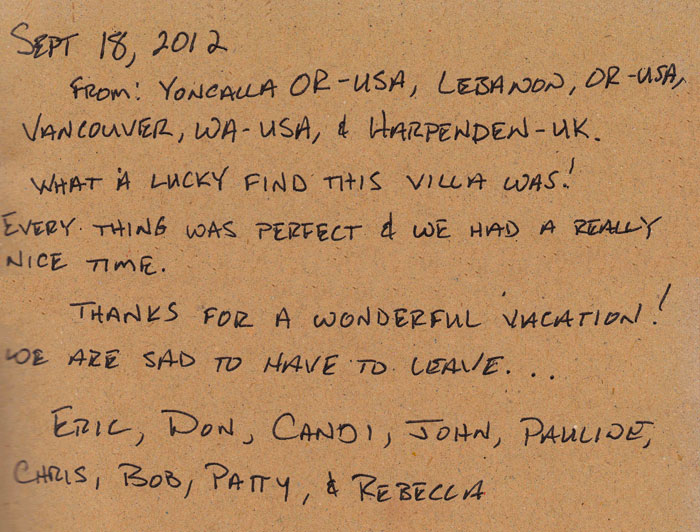 SEPT 18, 2012
FROM: YONCALLA OR-USA, LEBANON, OR-USA,
VANCOUVER, WA-USA, & HARPENDEN-UK.
WHAT A LUCKY FIND THIS VILLA WAS!
EVERY THING WAS PERFECT & WE HAD A REALLY
NICE TIME.
THANKS FOR A WONDERFUL VACATION!
WE ARE SAD TO HAVE TO LEAVE...
ERIC, DON, CANDI, JOHN, PAULINE,
CHRIS, BOB, PATTY, & REBECCA